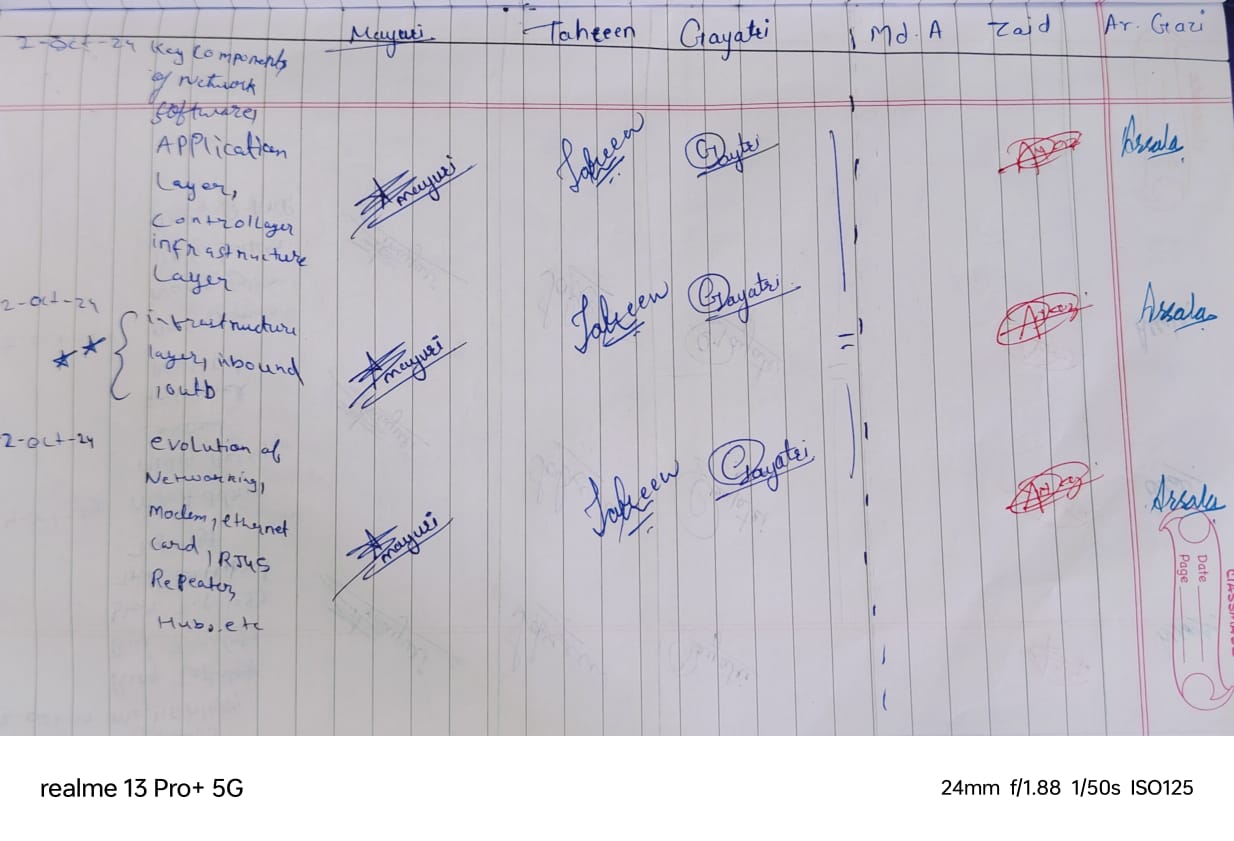 Mayuri. Taheeen Gayatri Md. A Zaid Ar. Gazi
2-Oct-24 Key Components
of Network
Softwares
APPlication
Layer,
Control Layer
infrastructure
Layer
mayuri Taheen Gayatri Assala
2-oct-24
infrastructure
layer, inbound
, outb
mayuri Taheen Gayatri Assala
2-oct-24 evolution of
Networking,
Modem, ethernet
Card, RJ45
Repeater,
Hubs. etc
mayuri Taheen Gayatri Assala
CLASSMATE
Date
Page
realme 13 Pro+ 5G
24mm f/1.88 1/50s ISO125